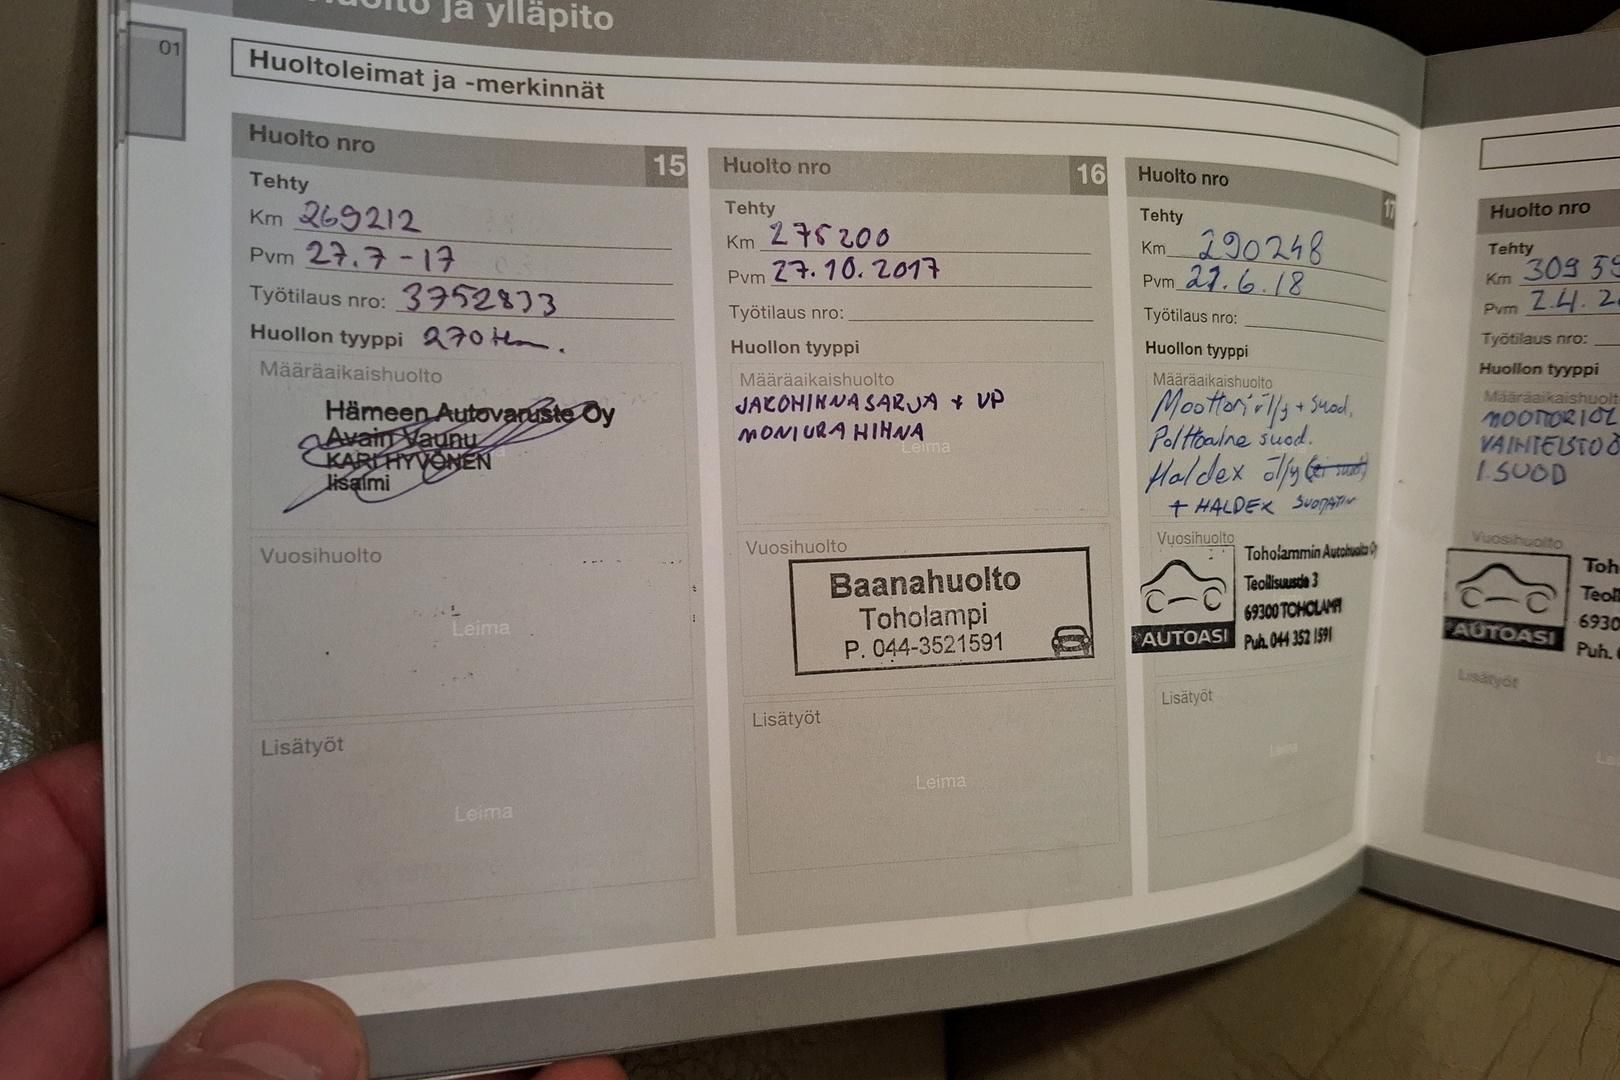 ja ylläpito
01
Huoltoleimat ja -merkinnät
Huolto nro 15
Tehty
Km 269212
Pvm 27.7-17
Työtilaus nro: 3752833
Huollon tyyppi 270
Määräaikaishuolto
Hämeen Autovaruste Oy
Avain Vaunu
KARI HYVÖNEN
Iisalmi
Vuosihuolto
Leima
Lisätyöt
Leima
Huolto nro 16
Tehty
Km 275200
Pvm 27.10.2017
Työtilaus nro:
Huollon tyyppi
Määräaikaishuolto
JAKOHIHNASARJA + VP
MONIURAHIHNA
Leima
Vuosihuolto
Baanahuolto
Toholampi
P. 044-3521591
Lisätyöt
Leima
Huolto nro 17
Tehty
Km 290248
Pvm 21.6.18
Työtilaus nro:
Huollon tyyppi
Määräaikaishuolto
Moottoriöljy + suod.
Polttoaine suod.
Haldex öljy
+ HALDEX SUODATIN
Vuosihuolto
AUTOASI
Toholammin Autohuolto Oy
Teollisuustie 3
69300 TOHOLAMPI
Puh. 044 352 1591
Lisätyöt
Leima
Huolto nro
Tehty
Km 309
Pvm 2.4.
Työtilaus nro:
Huollon tyyppi
MOOTTORIÖL
VAIHTEISTOÖ
I.SUOD
Vuosihuolto
AUTOASI
Toh
Teoll
6930
Puh.
Lisätyöt